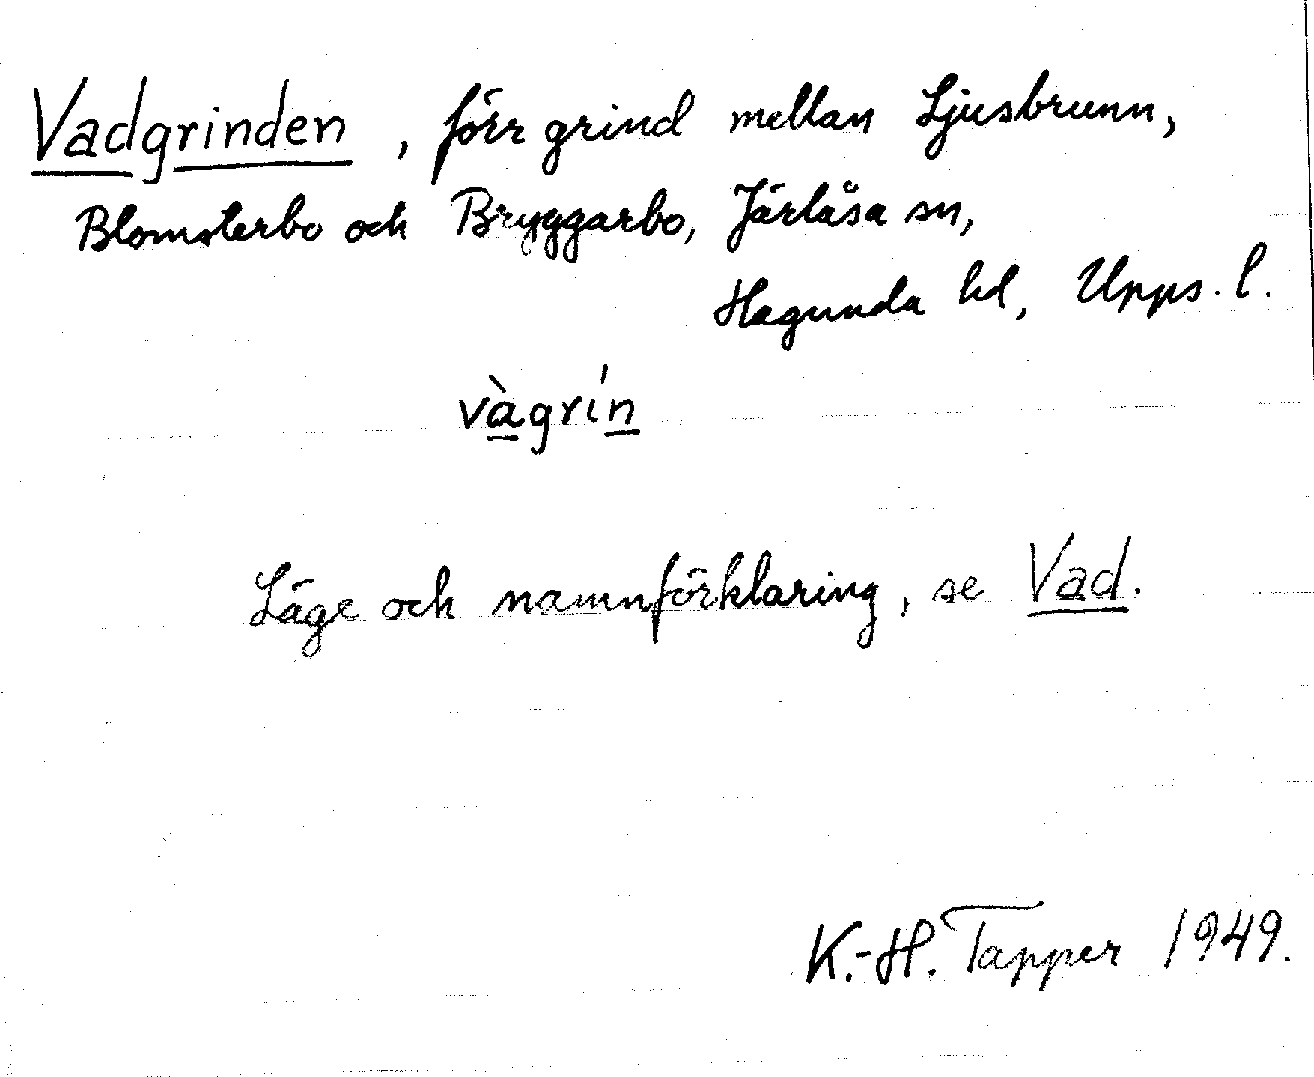 Vadgrinden, förr grind mellan Ljusbrunn,
Blomsterbo och Bryggarbo, Järlåsa sn,
Hagunda hd, Upps. l.
vàgrín
Läge och namnförklaring, se Vad.
K.-H. Tapper 1949.